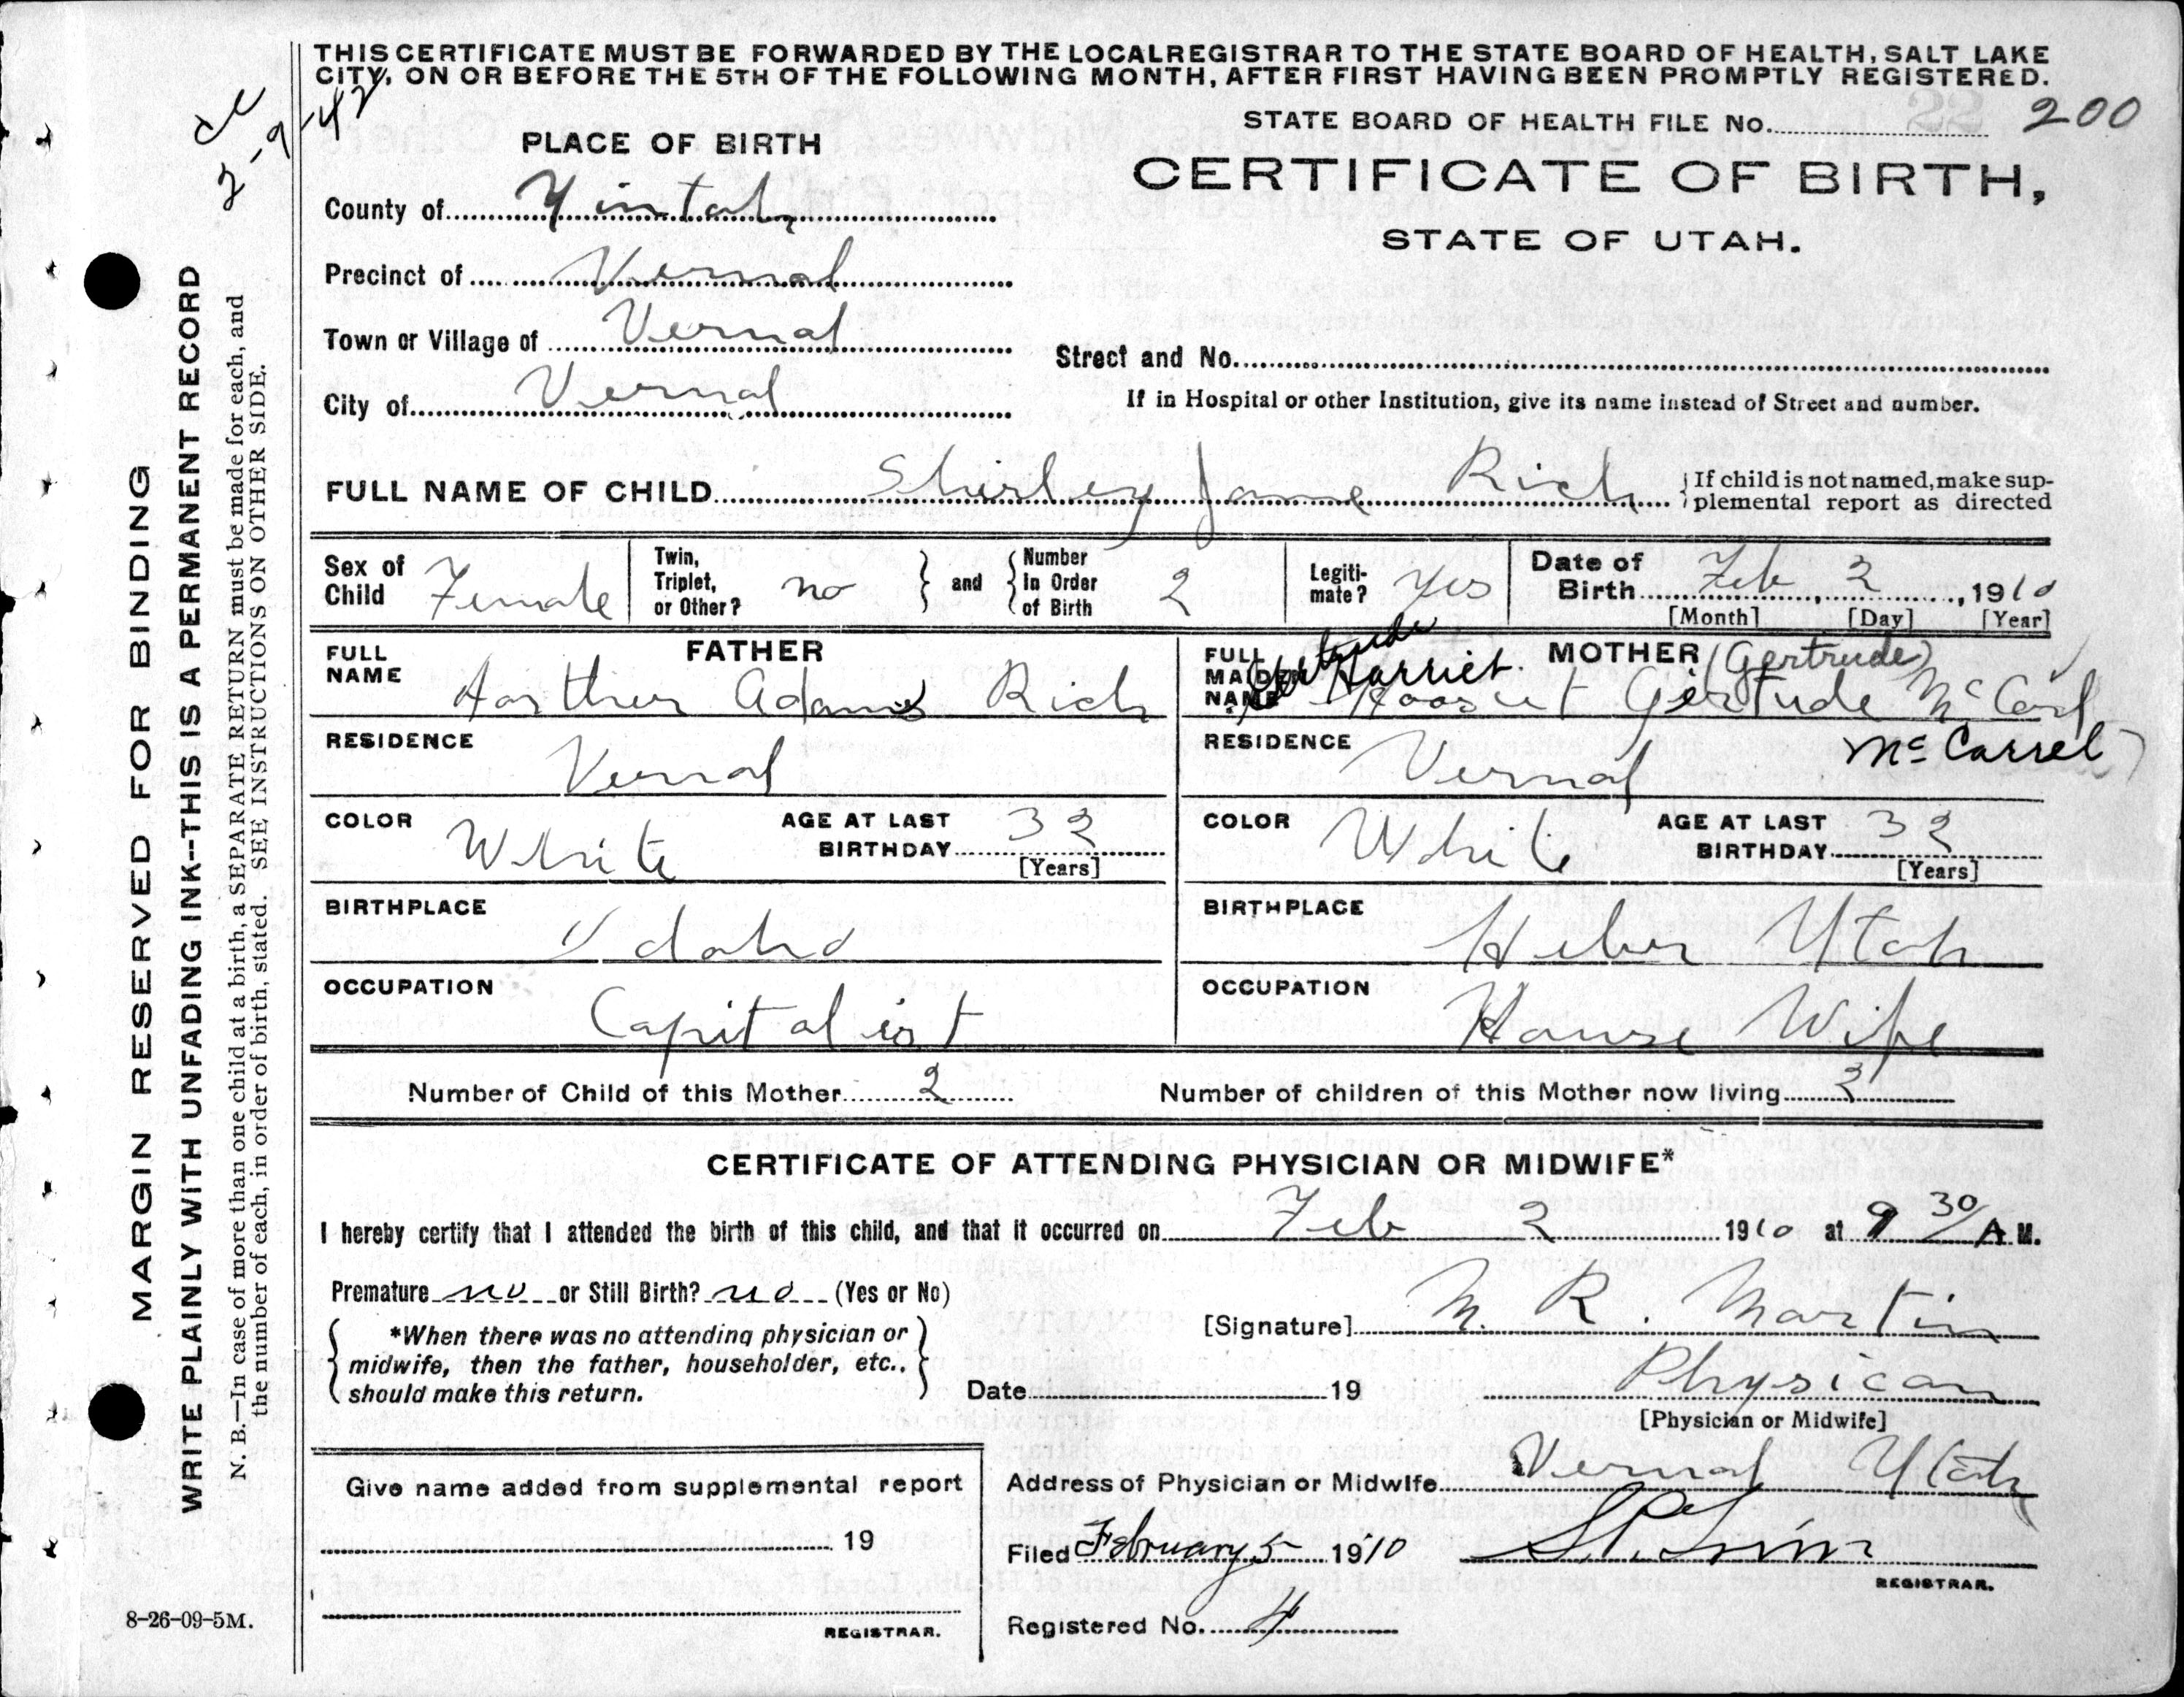 THIS CERTIFICATE MUST BE FORWARDED BY THE LOCAL REGISTRAR TO THE STATE BOARD OF HEALTH, SALT LAKE
CITY, ON OR BEFORE THE 5TH OF THE FOLLOWING MONTH, AFTER FIRST HAVING BEEN PROMPTLY REGISTERED.
2-9-42
STATE BOARD OF HEALTH FILE No. 22 200
PLACE OF BIRTH
CERTIFICATE OF BIRTH,
STATE OF UTAH.
County of Yintah
Precinct of Vernal
Town or Village of Vernal
Street and No.
City of Vernal
If in Hospital or other Institution, give its name instead of Street and number.
FULL NAME OF CHILD Shirley Jane Rich { If child is not named, make sup-
plemental report as directed
Sex of Child Female
Twin, Triplet, or Other? no } and { Number In Order of Birth 2
Legiti-mate? Yes
Date of Birth Feb 2, 1910
[Month] [Day] [Year]
FATHER
FULL NAME Aarthur Adams Rich
RESIDENCE Vernal
COLOR White AGE AT LAST BIRTHDAY 32
[Years]
BIRTHPLACE Idaho
OCCUPATION Capitalist
MOTHER (Gertrude)
Gertrude Harriet
FULL MAIDEN NAME Gertude McCarl
McCarrel
RESIDENCE Vernal
COLOR White AGE AT LAST BIRTHDAY 32
[Years]
BIRTHPLACE Heber Utah
OCCUPATION House Wife
Number of Child of this Mother 2 Number of children of this Mother now living 2
CERTIFICATE OF ATTENDING PHYSICIAN OR MIDWIFE*
I hereby certify that I attended the birth of this child, and that it occurred on Feb 2 1910 at 9 30 A M.
Premature no or Still Birth? no (Yes or No)
{ *When there was no attending physician or
midwife, then the father, householder, etc.,
should make this return. }
[Signature] M. R. Martin
Date 19 Physican
[Physician or Midwife]
Give name added from supplemental report
19
REGISTRAR.
Address of Physician or Midwife Vernal Utah
Filed February 5 1910
REGISTRAR.
Registered No. 4
8-26-09-5M.
MARGIN RESERVED FOR BINDING
WRITE PLAINLY WITH UNFADING INK--THIS IS A PERMANENT RECORD
N. B.—In case of more than one child at a birth, a SEPARATE RETURN must be made for each, and
the number of each, in order of birth, stated. SEE INSTRUCTIONS ON OTHER SIDE.